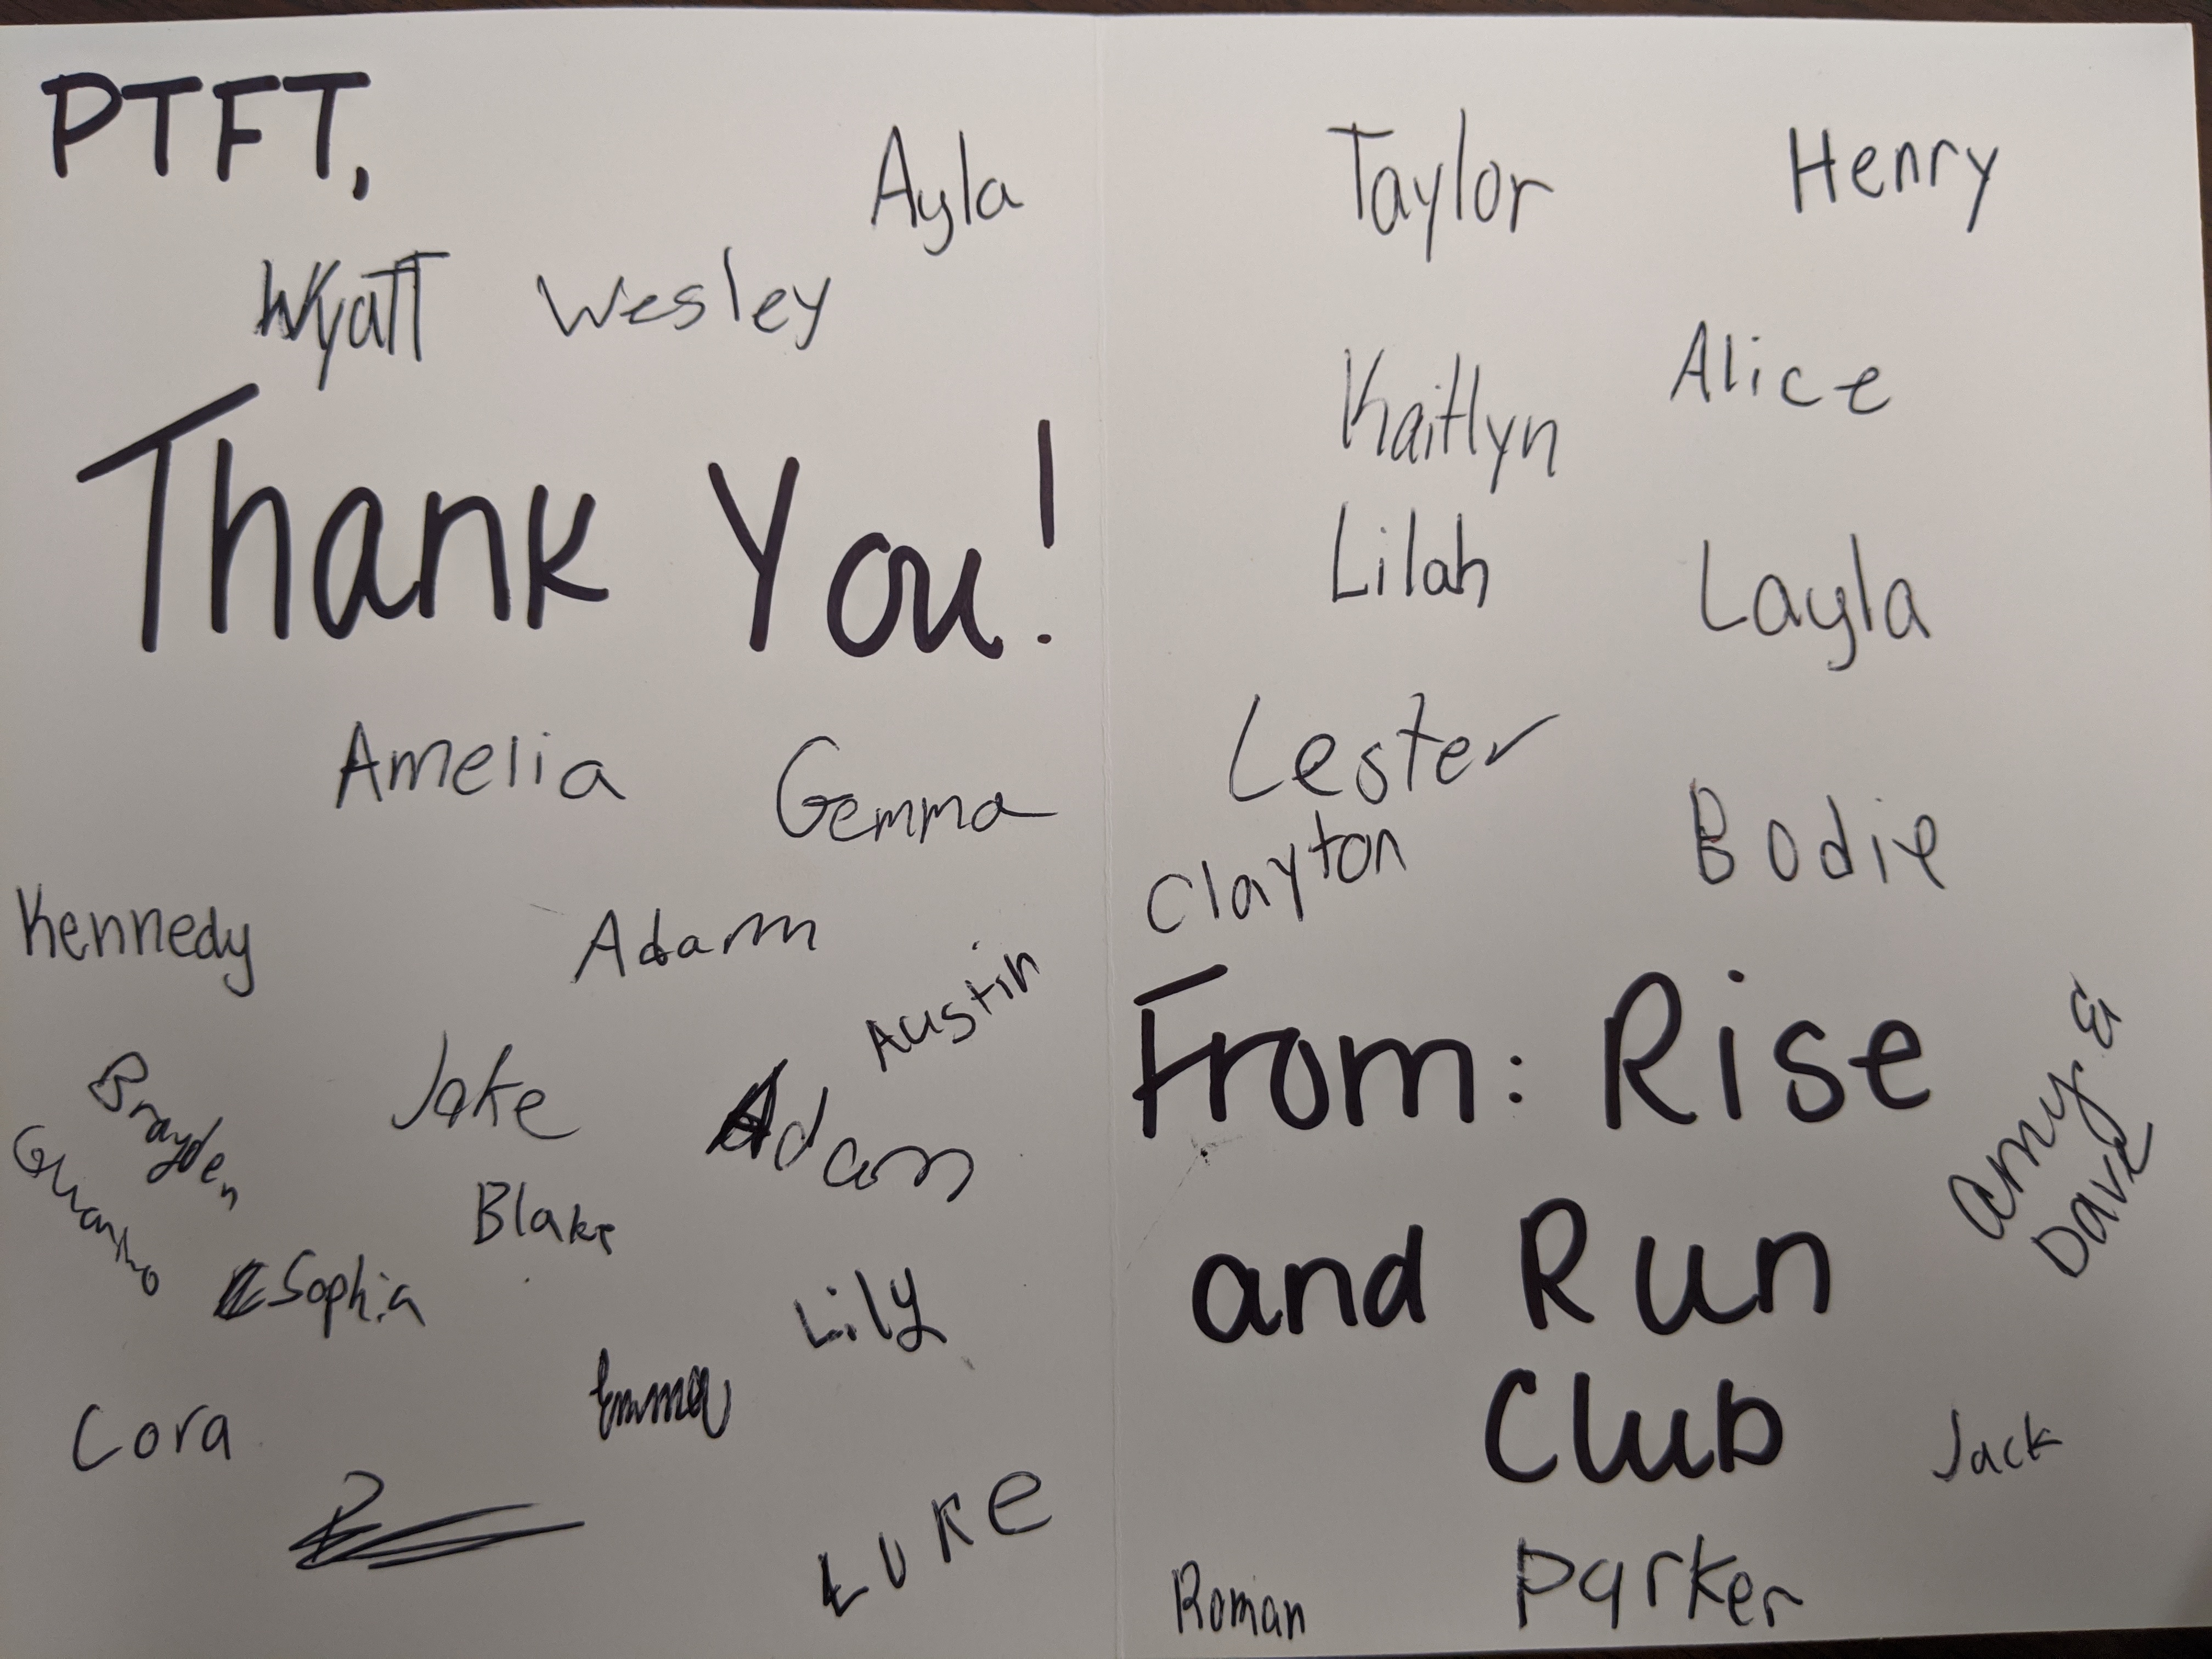 PTFT,
Ayla
Wyatt Wesley
Thank You!
Amelia Gemma
Kennedy Adam
Austin
Brayden Jake Adam
Blake
Sophia Lily
Emma
Cora
Luke
Taylor Henry
Kaitlyn Alice
Lilah Layla
Lester
Clayton Bodie
From: Rise
and Run
Club
Amy &
Dave
Jack
Roman Parker